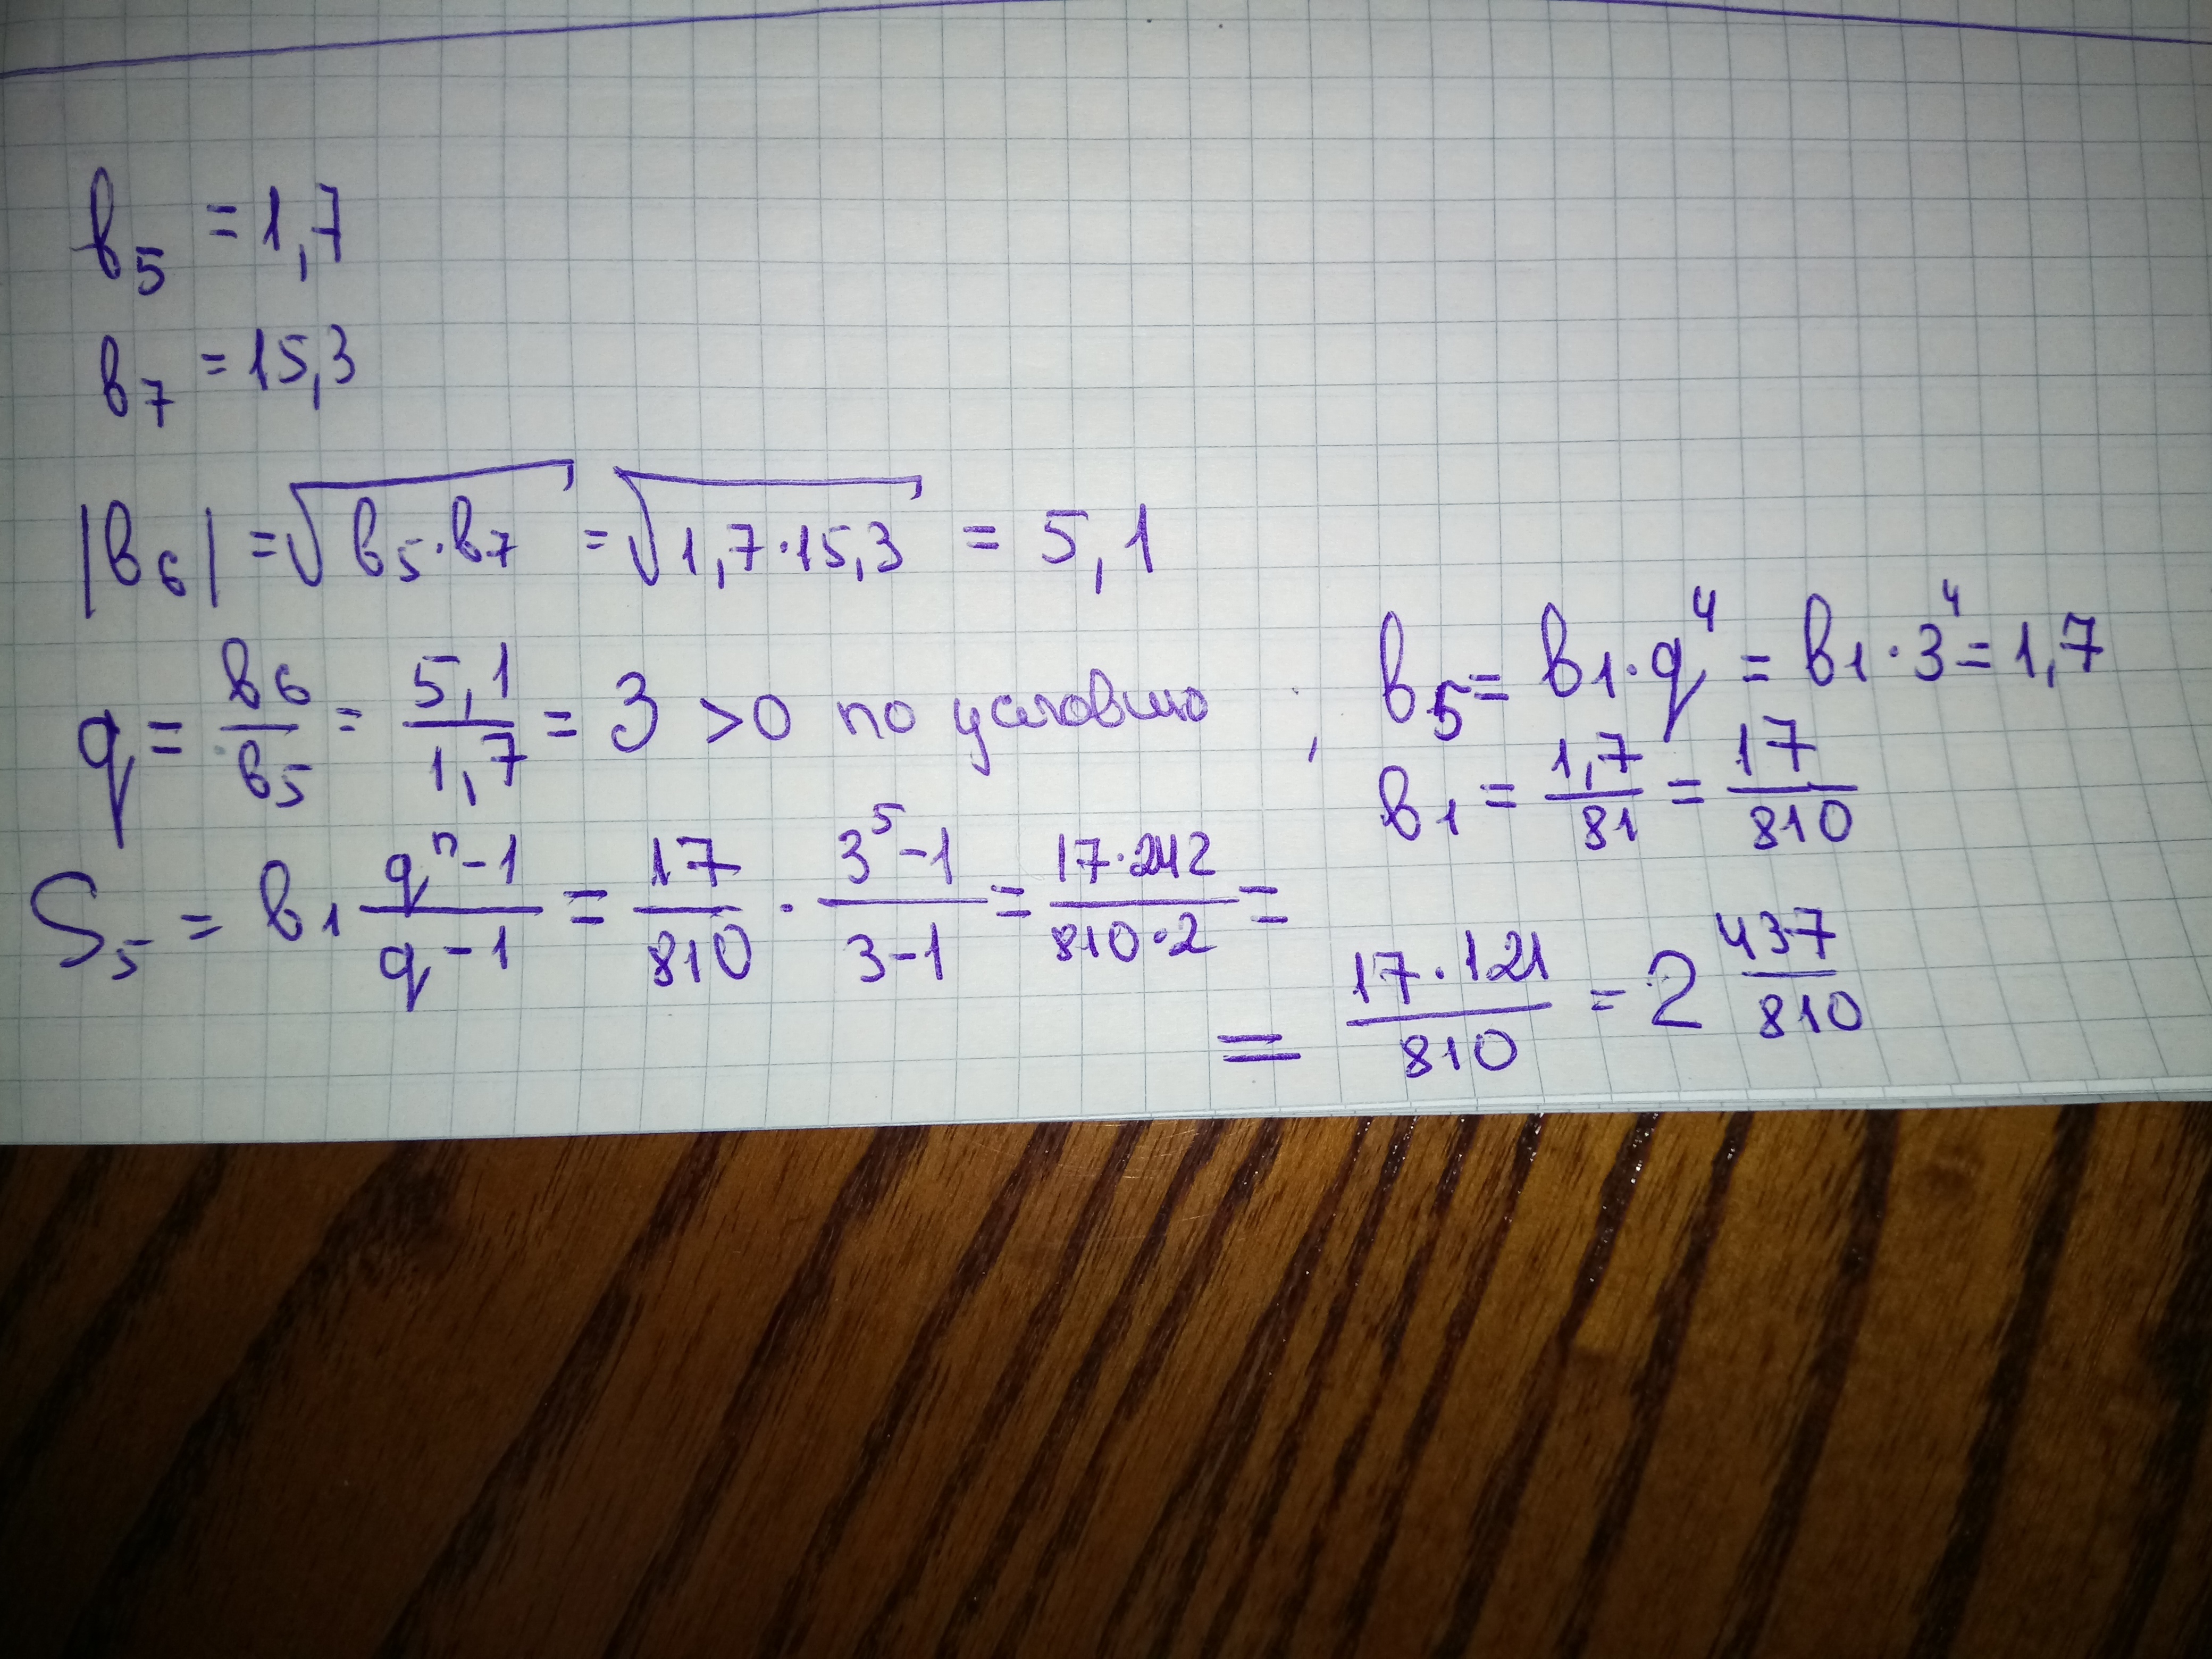 b₅ = 1,7
b₇ = 15,3
|b₆| = √(b₅·b₇) = √(1,7·15,3) = 5,1
q = b₆/b₅ = 5,1/1,7 = 3 > 0 по условию ; b₅ = b₁·q⁴ = b₁·3⁴ = 1,7
b₁ = 1,7/81 = 17/810
S₅ = b₁ (qⁿ-1)/(q-1) = 17/810 · (3⁵-1)/(3-1) = (17·242)/(810·2) =
= (17·121)/810 = 2 437/810